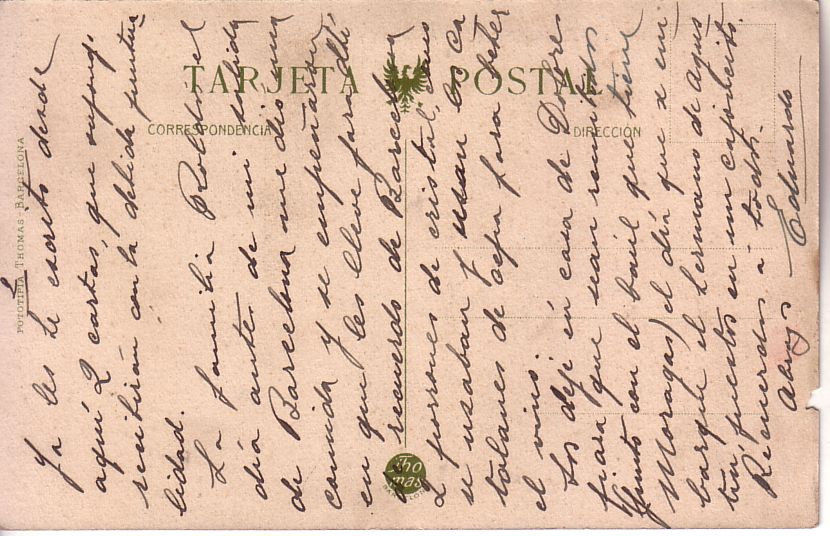 TARJETA POSTAL
CORRESPONDENCIA
DIRECCIÓN
FOTOTIPIA THOMAS - BARCELONA
Ya les he escrito desde
aquí 2 cartas, que supong.
recibirán con la debida puntua
lidad.
La familia Roldós el
día antes de mi salida
de Barcelona me dió una
comida y se empeñaron
en que les lleve para allí
de recuerdo de Barcelona
2 porrones de cristal, como
se usaban y usan los ca
talanes de cepa para beber
el vino.
Los dejé en casa de Dolores
para que sean remitidos
(junto con el baúl que tiene
Moragas) el día que se em
barque el hermano de Agus
tín, puestos en un cajoncito.
Recuerdos a todos.
Abrazos
Eduardo
Thomas
BARCELONA